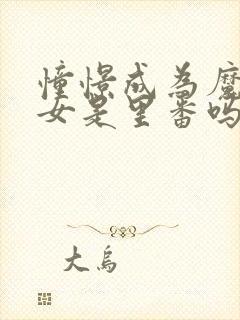 憧憬成为魔
女是里番吗
大乌